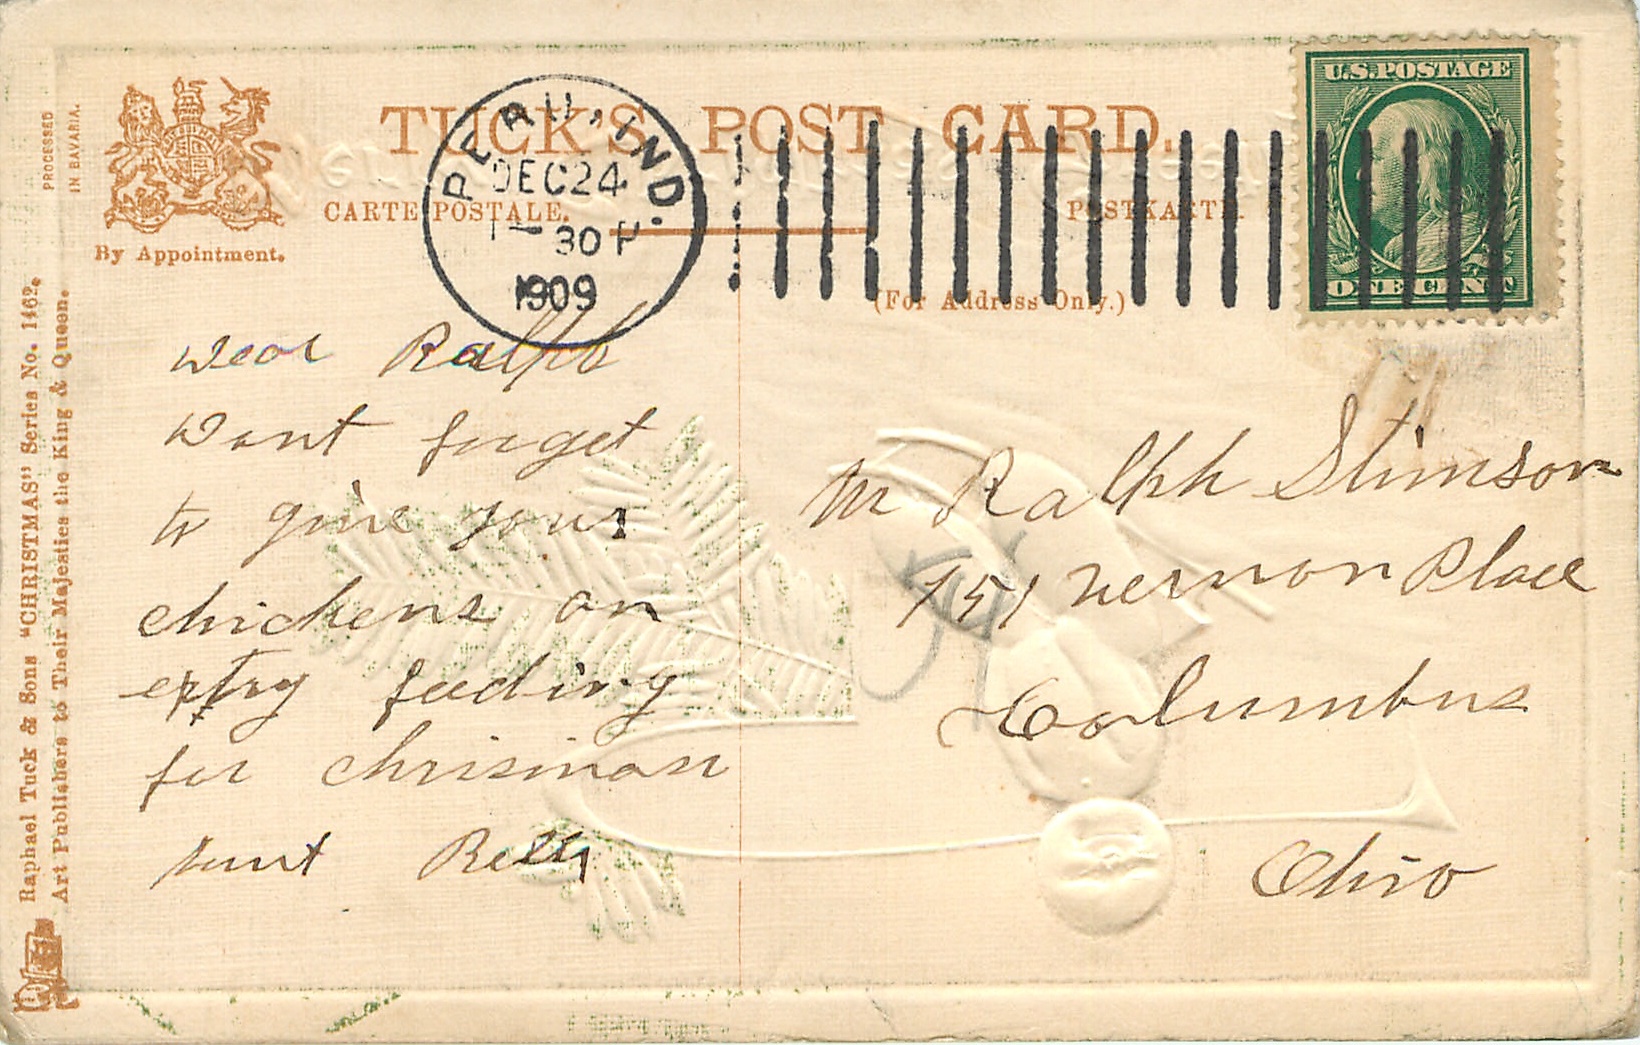 TUCK'S POST CARD.
CARTE POSTALE. POSTKARTE.
(For Address Only.)
By Appointment.
PROCESSED
IN BAVARIA.
Raphael Tuck & Sons "CHRISTMAS" Series No. 1462.
Art Publishers to Their Majesties the King & Queen.
PERU, IND.
DEC 24
1909
U.S. POSTAGE
ONE CENT
Dear Ralph
Dont forget
to give your
chickens an
extry feeding
for chrismas
Aunt
Mr Ralph Stimson
751 Vernon Place
Columbus
Ohio